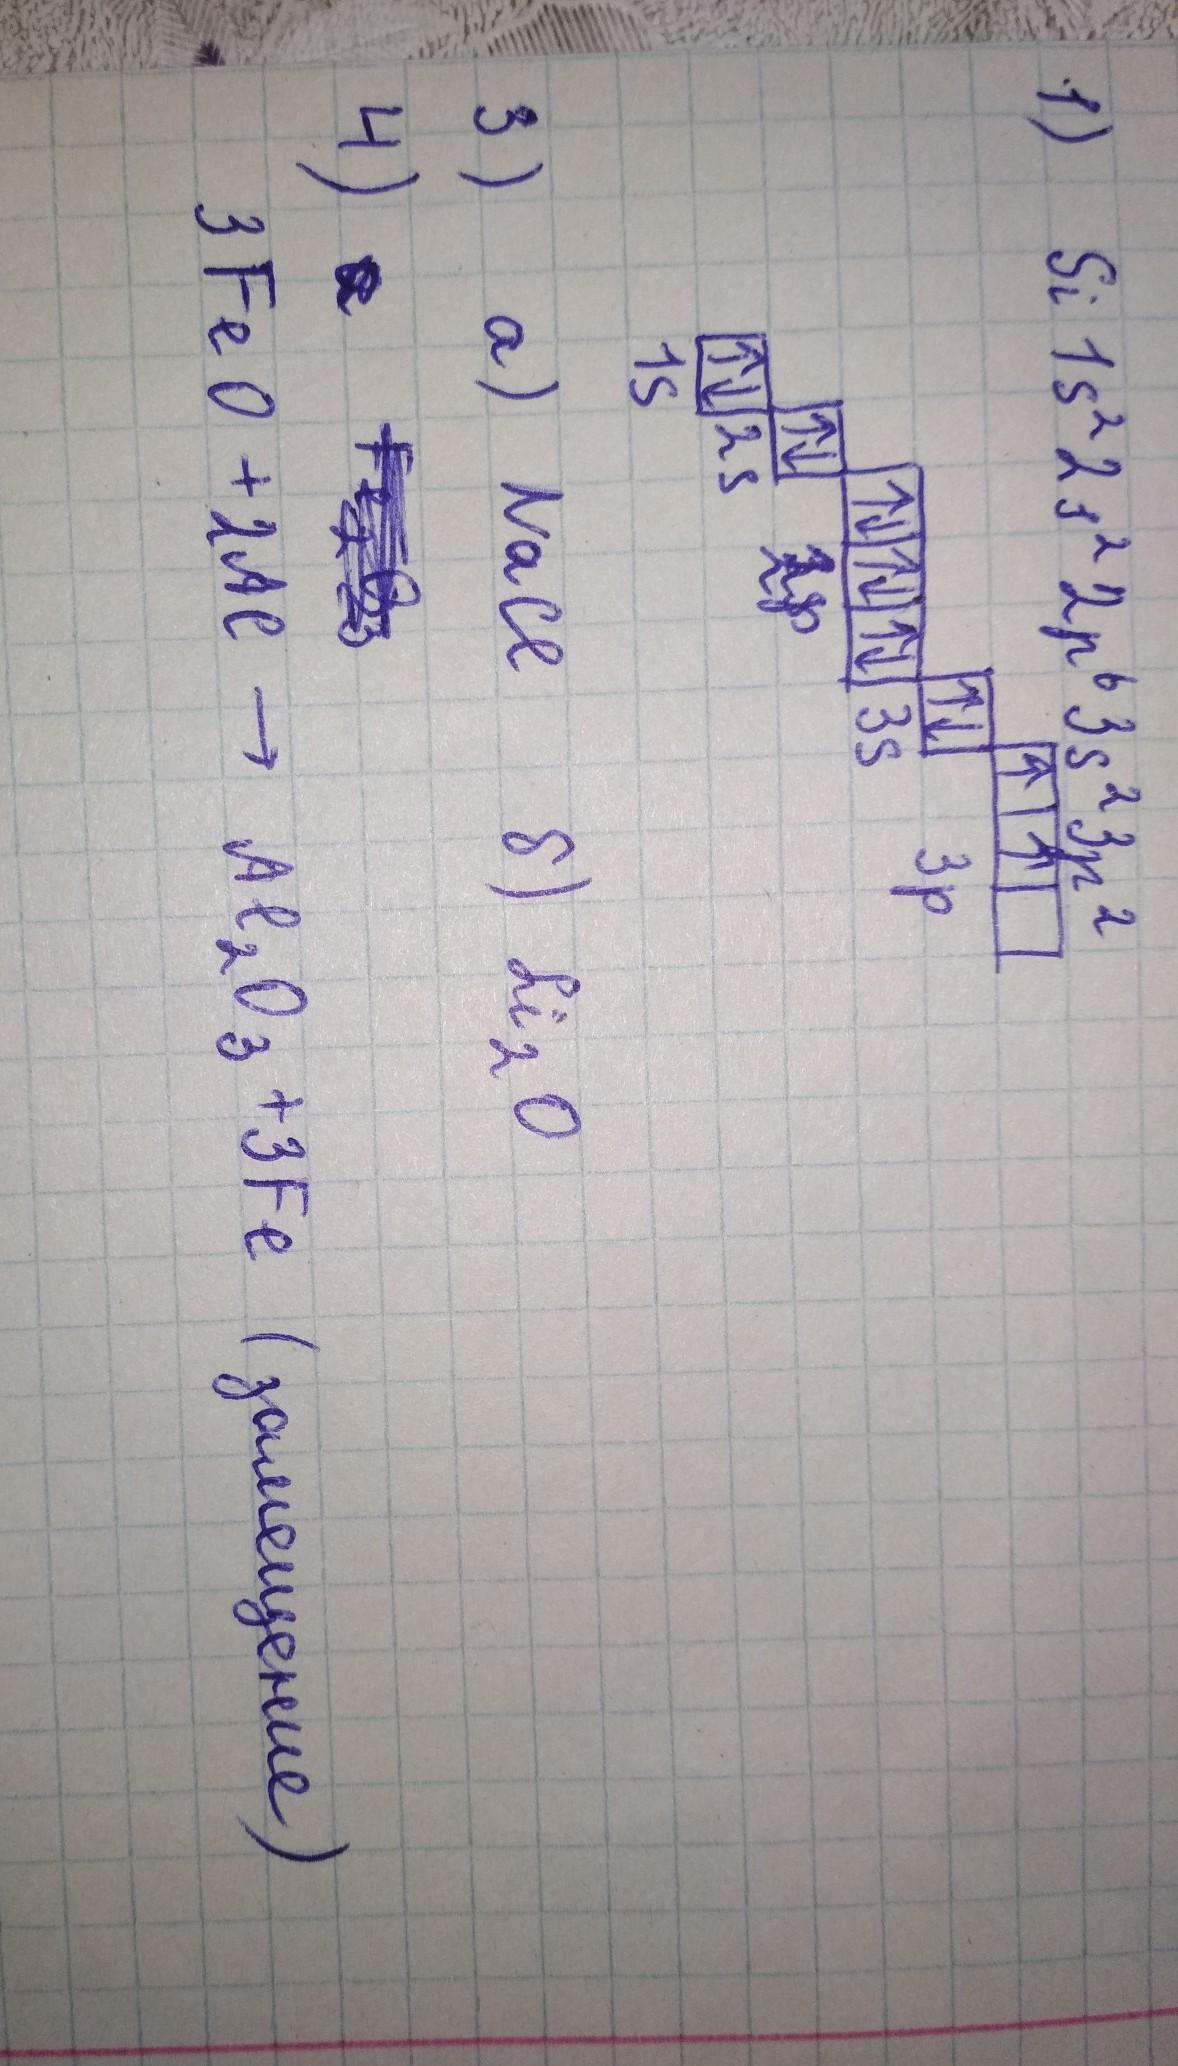 1) Si 1s² 2s² 2p⁶ 3s² 3p²
↑ ↑
3p
↑↓
3s
↑↓ ↑↓ ↑↓
2p
↑↓
2s
↑↓
1s
3) а) NaCl б) Li₂O
4)
3FeO + 2Al → Al₂O₃ + 3Fe (замещение)